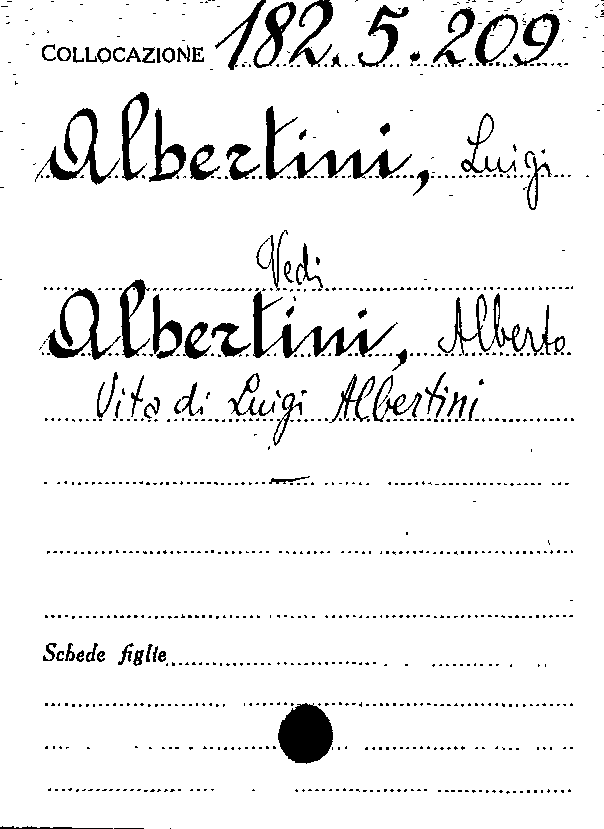 COLLOCAZIONE 182.5.209
Albertini, Luigi
Vedi
Albertini, Alberto
Vita di Luigi Albertini
Schede figlie